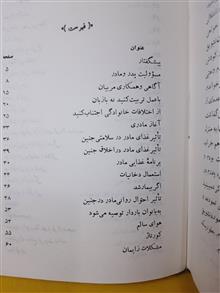 «( فهرست )»
عنوان صفحه
پیشگفتار ۵
مسؤولیت پدر و مادر ۸
آگاهی و همکاری مربیان ۱۵
با عمل تربیت کنید نه با زبان ۲۰
از اختلافات خانوادگی اجتناب کنید ۲۵
آغاز مادری ۳۳
تأثیر غذای مادر در سلامتی جنین ۳۶
تأثیر غذای مادر در اخلاق جنین
برنامهٔ غذایی مادر
استعمال دخانیات
اگر بیمار شد
تأثیر احوال روانی مادر در جنین
به بانوان باردار توصیه می‌شود ۵۳
هوای سالم ۵۴
کورتاژ ۵۵
مشکلات زایمان ۶۰